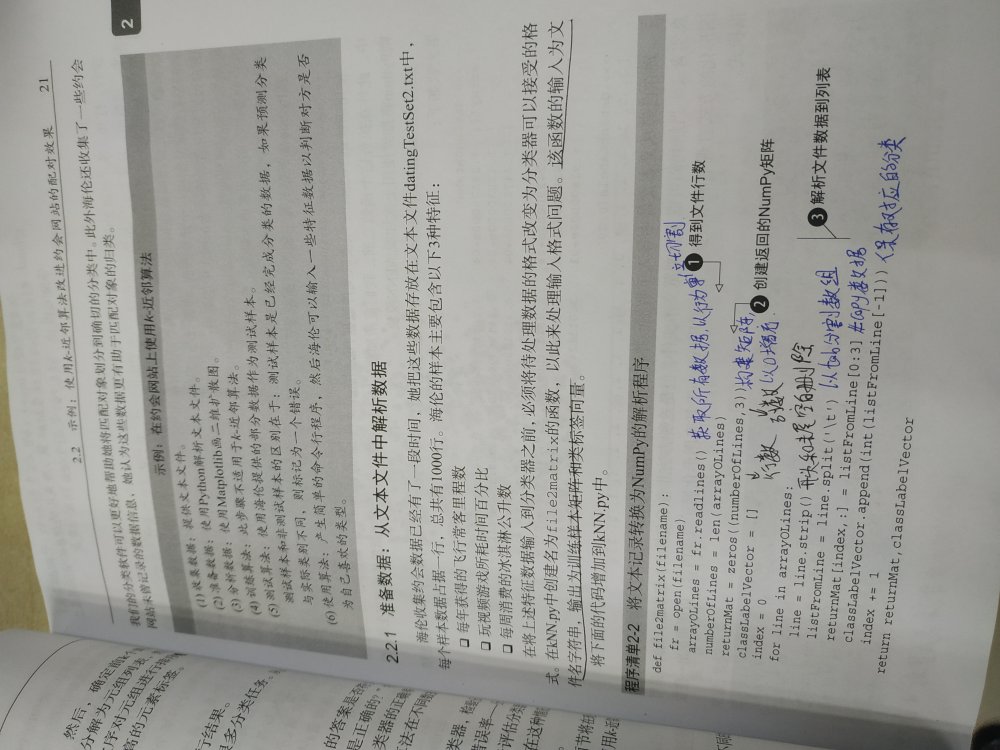 2.2 示例：使用k-近邻算法改进约会网站的配对效果 21
我们的分类软件可以更好地帮助她将匹配对象划分到确切的分类中。此外海伦还收集了一些约会
网站未曾记录的数据信息，她认为这些数据更有助于匹配对象的归类。
2
示例：在约会网站上使用k-近邻算法
(1) 收集数据：提供文本文件。
(2) 准备数据：使用Python解析文本文件。
(3) 分析数据：使用Matplotlib画二维扩散图。
(4) 训练算法：此步骤不适用于k-近邻算法。
(5) 测试算法：使用海伦提供的部分数据作为测试样本。
测试样本和非测试样本的区别在于：测试样本是已经完成分类的数据，如果预测分类
与实际类别不同，则标记为一个错误。
(6) 使用算法：产生简单的命令行程序，然后海伦可以输入一些特征数据以判断对方是否
为自己喜欢的类型。
2.2.1 准备数据：从文本文件中解析数据
海伦收集约会数据已经有了一段时间，她把这些数据存放在文本文件datingTestSet2.txt中，
每个样本数据占据一行，总共有1000行。海伦的样本主要包含以下3种特征：
❑ 每年获得的飞行常客里程数
❑ 玩视频游戏所耗时间百分比
❑ 每周消费的冰淇淋公升数
在将上述特征数据输入到分类器之前，必须将待处理数据的格式改变为分类器可以接受的格
式。在kNN.py中创建名为file2matrix的函数，以此来处理输入格式问题。该函数的输入为文
件名字符串，输出为训练样本矩阵和类标签向量。
将下面的代码增加到kNN.py中。
程序清单2-2 将文本记录转换为NumPy的解析程序
def file2matrix(filename):
fr = open(filename)
arrayOLines = fr.readlines() 获取所有数据以行为单位切割
❶ 得到文件行数
numberOfLines = len(arrayOLines)
returnMat = zeros((numberOfLines,3)) 构建矩阵,
❷ 创建返回的NumPy矩阵
行数 以0填充
classLabelVector = []
index = 0
for line in arrayOLines:
line = line.strip() 开头和末尾空白删除
listFromLine = line.split('\t') 以tab分割数组
returnMat[index,:] = listFromLine[0:3] 去copy类数据
❸ 解析文件数据到列表
classLabelVector.append(int(listFromLine[-1])) 保存对应的分类
index += 1
return returnMat,classLabelVector
然后，确定前k个
分解为元组列表，
序对元组进行排
高的元素标签。
行结果。
多分类任务。
的答案是否
是正确的？
类器的正确
法在不同
类器，检
错误率